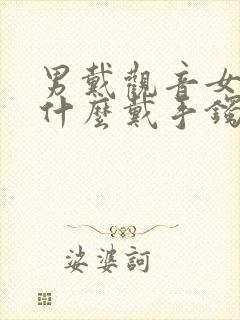 男戴觀音女
什麼戴手鐲
娑婆訶